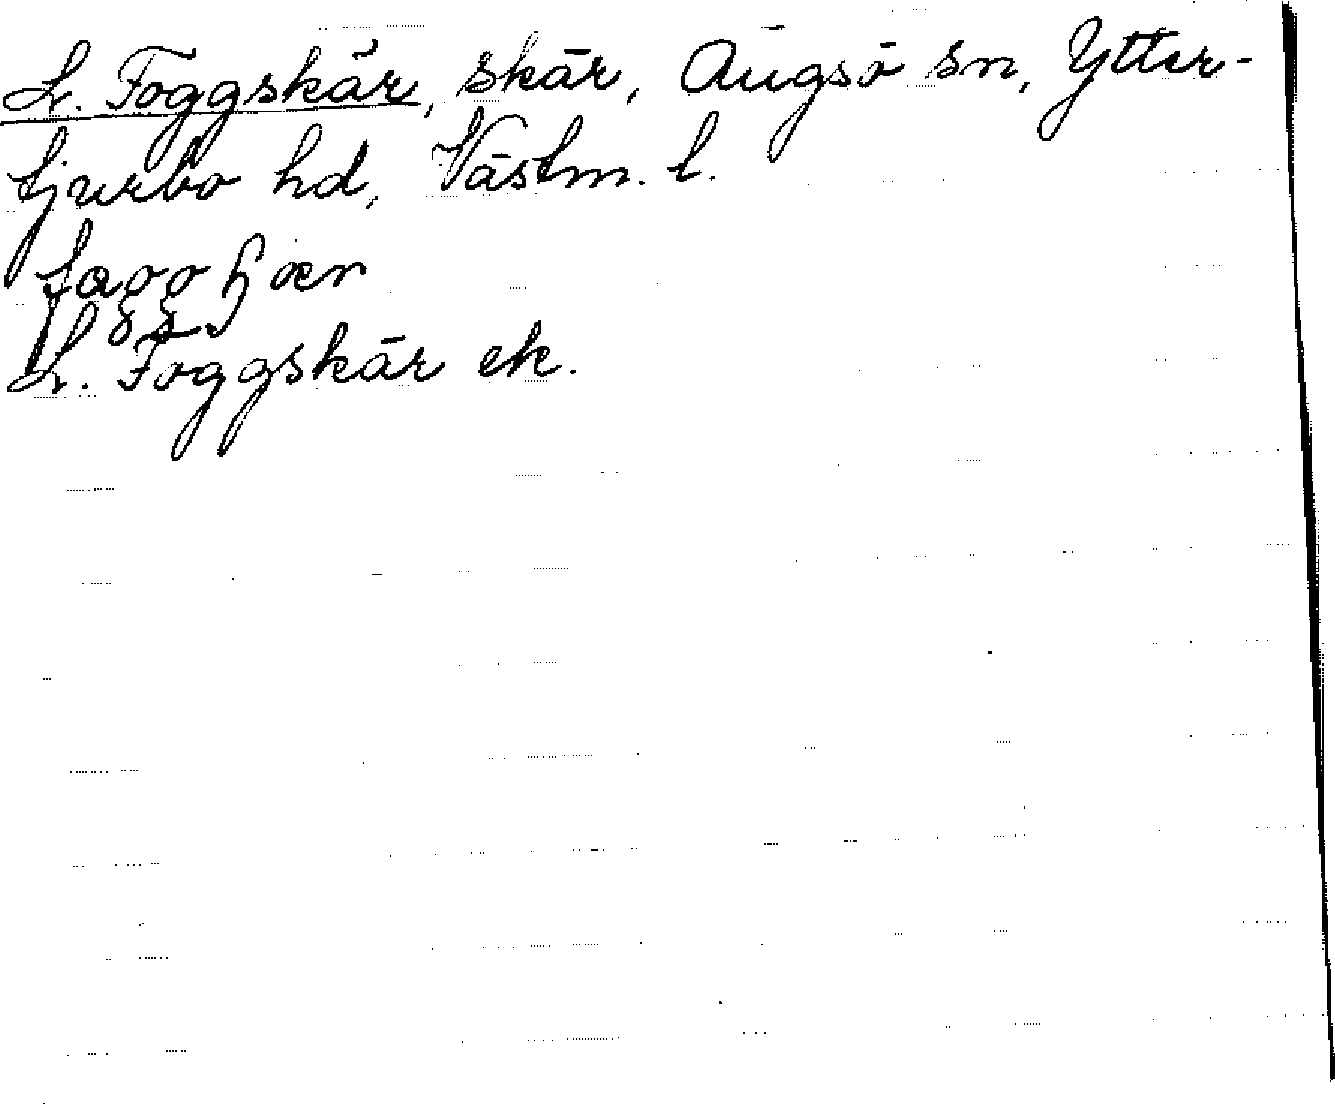 L. Foggskär, skär, Ängsö sn, Ytter-
tjurbo hd, Västm. l.
L. Foggskär ek.